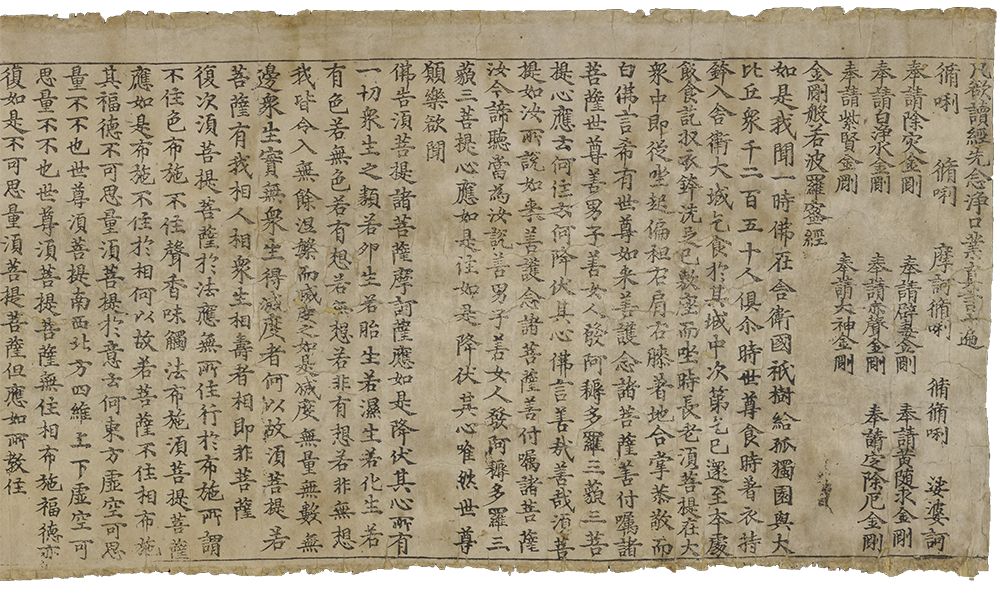 凡欲讀經先念淨口業真言一遍
脩唎 脩唎 摩訶脩唎 脩脩唎 娑婆訶
奉請除灾金剛 奉請辟毒金剛 奉請黃隨求金剛
奉請白淨水金剛 奉請赤聲金剛 奉請定除厄金剛
奉請紫賢金剛 奉請大神金剛
金剛般若波羅蜜經
如是我聞一時佛在舍衛國祇樹給孤獨園與大
比丘衆千二百五十人俱尒時世尊食時著衣持
鉢入舍衛大城乞食於其城中次第乞已還至本處
飯食訖收衣鉢洗足已敷座而坐時長老須菩提在大
衆中即從坐起偏袒右肩右膝著地合掌恭敬而
白佛言希有世尊如来善護念諸菩薩善付囑諸
菩薩世尊善男子善女人發阿耨多羅三藐三菩
提心應云何住云何降伏其心佛言善哉善哉須菩
提如汝所說如来善護念諸菩薩善付囑諸菩薩
汝今諦聽當為汝說善男子善女人發阿耨多羅三
藐三菩提心應如是住如是降伏其心唯然世尊
願樂欲聞
佛告須菩提諸菩薩摩訶薩應如是降伏其心所有
一切衆生之類若卵生若胎生若濕生若化生若
有色若無色若有想若無想若非有想若非無想
我皆令入無餘涅槃而滅度之如是滅度無量無數無
邊衆生實無衆生得滅度者何以故須菩提若
菩薩有我相人相衆生相壽者相即非菩薩
復次須菩提菩薩於法應無所住行於布施所謂
不住色布施不住聲香味觸法布施須菩提菩薩
應如是布施不住於相何以故若菩薩不住相布施
其福德不可思量須菩提於意云何東方虛空可思
量不不也世尊須菩提南西北方四維上下虛空可
思量不不也世尊須菩提菩薩無住相布施福德亦
復如是不可思量須菩提菩薩但應如所教住